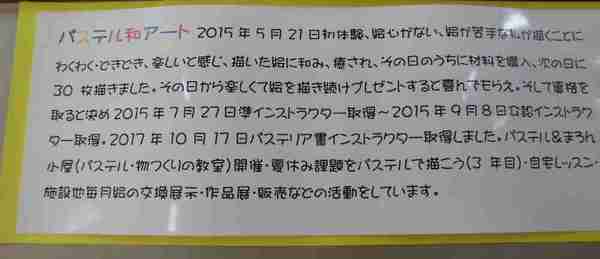 パステル和アート 2015年5月21日初体験、絵心がない、絵が苦手な私が描くことに
わくわく・どきどき、楽しいと感じ、描いた絵に和み、癒され、その日のうちに材料を購入、次の日に
30枚描きました。その日から楽しくて絵を描き続けプレゼントすると喜んでもらえ。そして資格を
取ると決め2015年7月27日準インストラクター取得~2015年9月8日公認インストラク
ター取得。2017年10月17日パステリア書インストラクター取得しました。パステル&まろん
小屋(パステル・物つくりの教室)開催・夏休み課題をパステルで描こう(3年目)・自宅レッスン・
施設他毎月絵の交換展示・作品展・販売などの活動をしています。